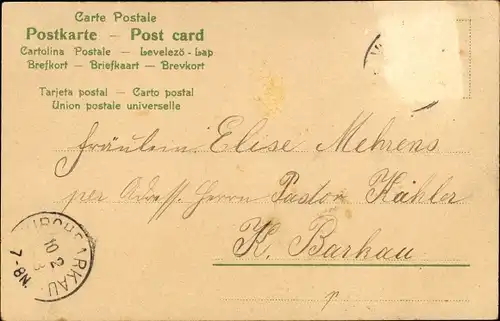 Carte Postale
Postkarte — Post card
Cartolina Postale — Levelező-Lap
Brefkort — Briefkaart — Brevkort
Tarjeta postal — Carto postal
Union postale universelle
Fräulein Elise Mehrens
per Adress. Herrn Pastor Kähler
K. Barkau
KIRCHBARKAU
10 2
7-8N.